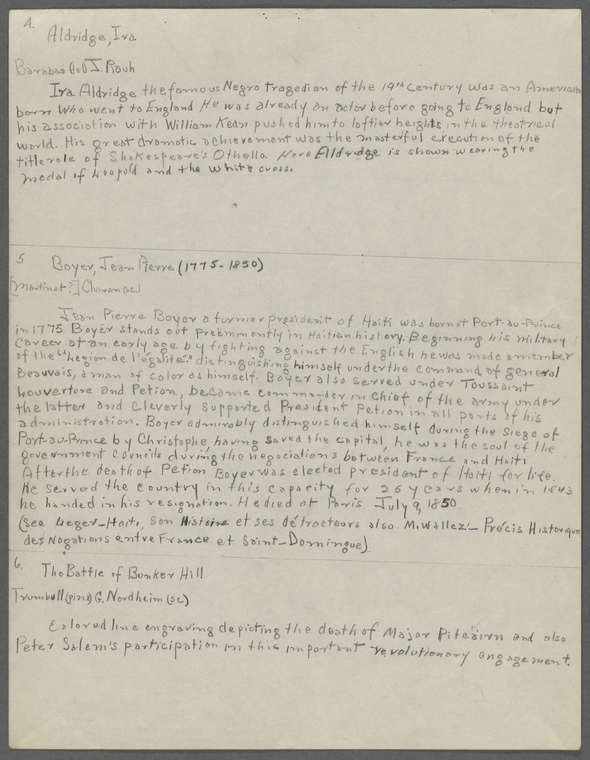 4.
Aldridge, Ira
Barabas (del) J. Rauh
Ira Aldridge the famous Negro tragedian of the 19th Century was an American
born who went to England He was already an actor before going to England but
his association with William Kean pushed him to loftier heights in the theatrical
world. His great dramatic achievement was the masterful execution of the
title role of Shakespeare's Othello. Here Aldridge is shown wearing the
medal of Leopold and the white cross.
5
Boyer, Jean Pierre (1775-1850)
[Martinet?] Charon (sc)
Jean Pierre Boyer a former president of Haiti was born at Port-au-Prince
in 1775 Boyer stands out preeminently in Haitian history. Beginning his military
career at an early age by fighting against the English he was made a member
of the "Legion de l'égalité." distinguishing himself under the command of general
Beauvais, a man of color as himself. Boyer also served under Toussaint
Louverture and Petion, became commander in chief of the army under
the latter and cleverly supported President Petion in all parts of his
administration. Boyer admirably distinguished himself during the siege of
Port-au-Prince by Christophe, having saved the capital, he was the soul of the
government councils during the negociations between France and Haiti
After the death of Petion Boyer was elected president of Haiti for life.
He served the country in this capacity for 26 years when in 1843
he handed in his resignation. He died at Paris July 9, 1850
(see Leger-Haiti, son Histoire et ses détracteurs also M. Wallez'- Précis Historique
des Nogations entre France et Saint-Domingue)
6.
The Battle of Bunker Hill
Trumbull (pinx) G. Nordheim (sc)
Colored line engraving depicting the death of Major Pitcairn and also
Peter Salem's participation in this important revolutionary engagement.